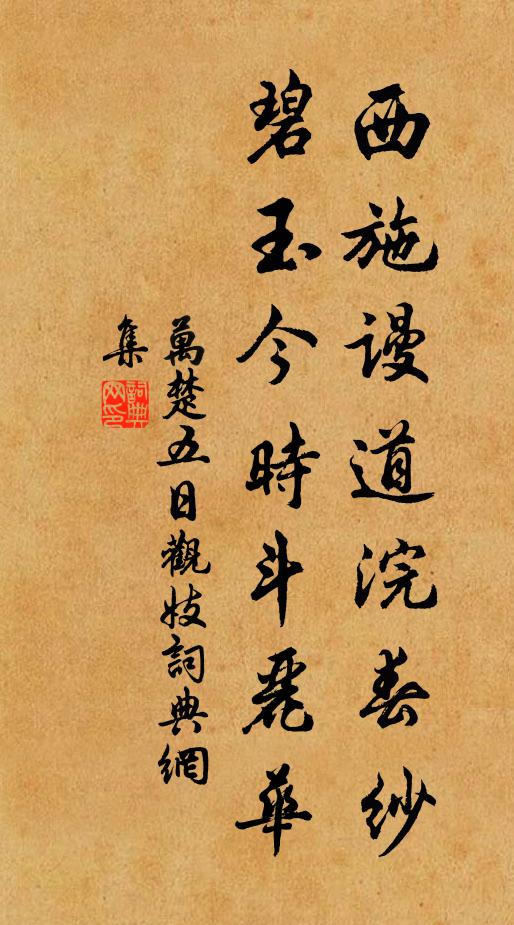 西施謾道浣春紗
碧玉今時斗麗華
萬楚五日觀妓詞典網
集
詞典網印